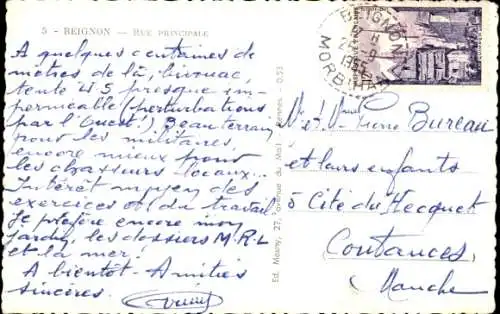 5 - BEIGNON — RUE PRINCIPALE
A quelques centaines de
mètres de là, bivouac,
tente U S presque im-
perméable (perturbations
par l'Ouest!). Beau terrain
pour les militaires,
encore mieux pour
les chasseurs locaux...
Intérêt moyen des
exercices et du travail
Je préfère encore mon
jardin, les dossiers M.R.L
et la mer!
A bientôt - Amitiés
sincères.
Ed. Mesny, 27, avenue du Mail - Rennes - 0.53
BEIGNON
MORBIHAN
Pierre Bureau
et leurs enfants
5 Cité du Hecquet
Coutances
Manche